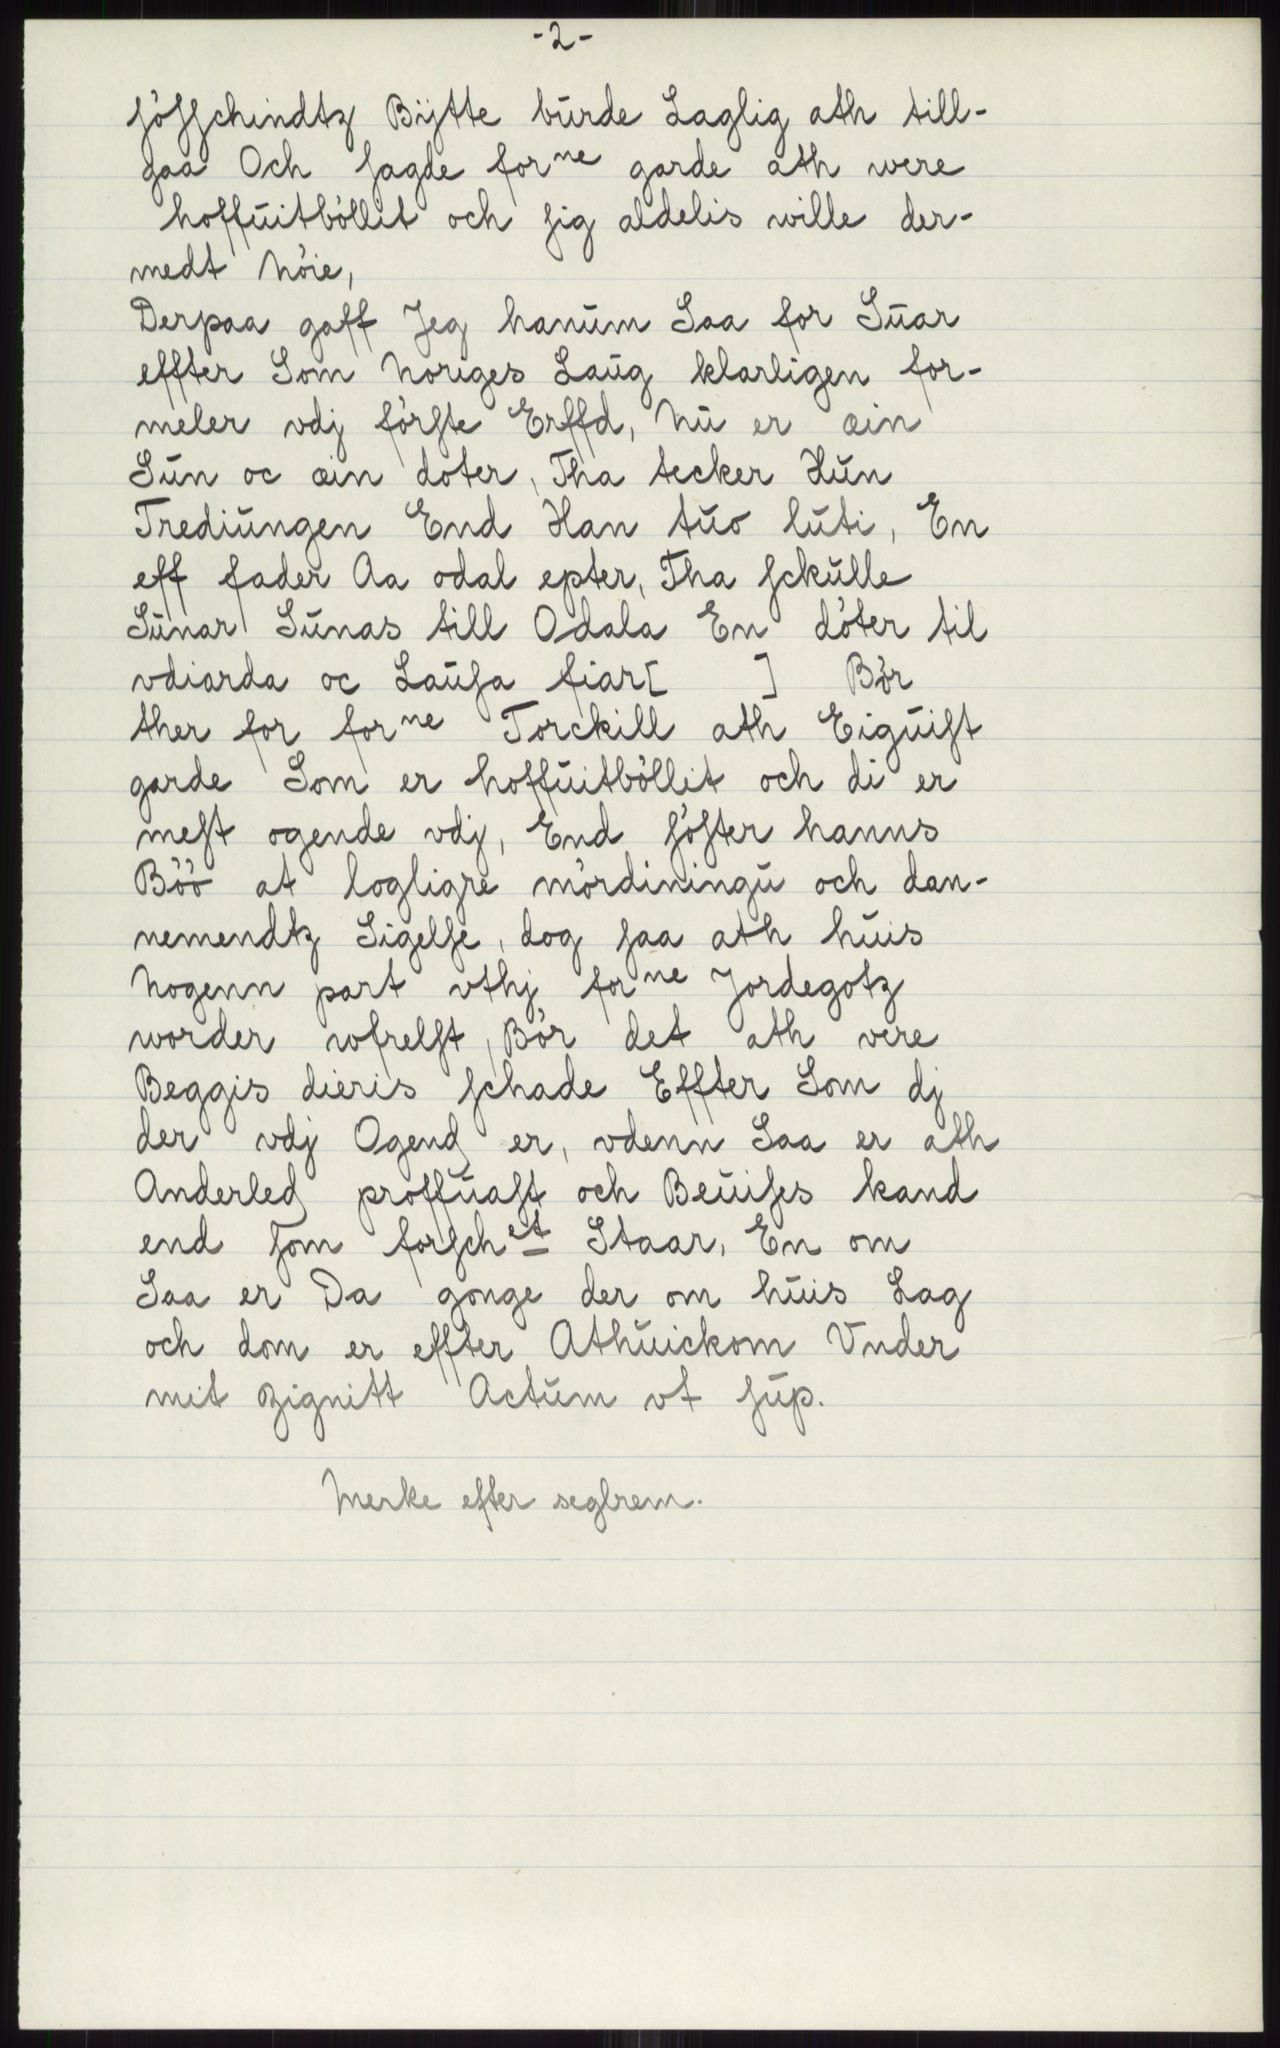 -2-
söſschindtz Bÿtte bürde Laglig ath till-
gaa Och ſagde forⁿᵉ garde ath were
hoffüitböllit och ſig aldelis wille der-
medt Nöie,
Derpaa gaff Jeg hanüm Saa for Süar
effter Som Noriges Laüg klarligen for-
meler vdj förſte Erffd, Nü er æin
Sün oc æin doter, Tha tecker Hün
Trediüngen End Han tüo lüti, En
eff fader Aa odal epter, Tha ſckülle
Sünar Sünas till Odala En döter til
vdiarda oc Laüſa fiar[ ] Bör
ther for forⁿᵉ Torckill ath Eigüiſt
garde Som er hoffüitböllit och di er
meſt ogende vdj, End ſöſter hanns
Böö at logligre mördiningü och dan-
nemendtz Sigelſe, dog ſaa ath hüis
Nogenn part vthj forⁿᵉ Jordegotz
worder wfrelſt, Bör det ath vere
Beggis dieris ſchade Effter Som dj
der vdj Ogend er, vdenn Saa er ath
Anderled proffüaſt och Beüiſes kand
end ſom forſchᵉᵗ Staar, En om
Saa er Da gonge der om hüis Lag
och dom er effter Athüickom Vnder
mit Zignitt Actüm vt ſüp.
Merke efter seglrem.